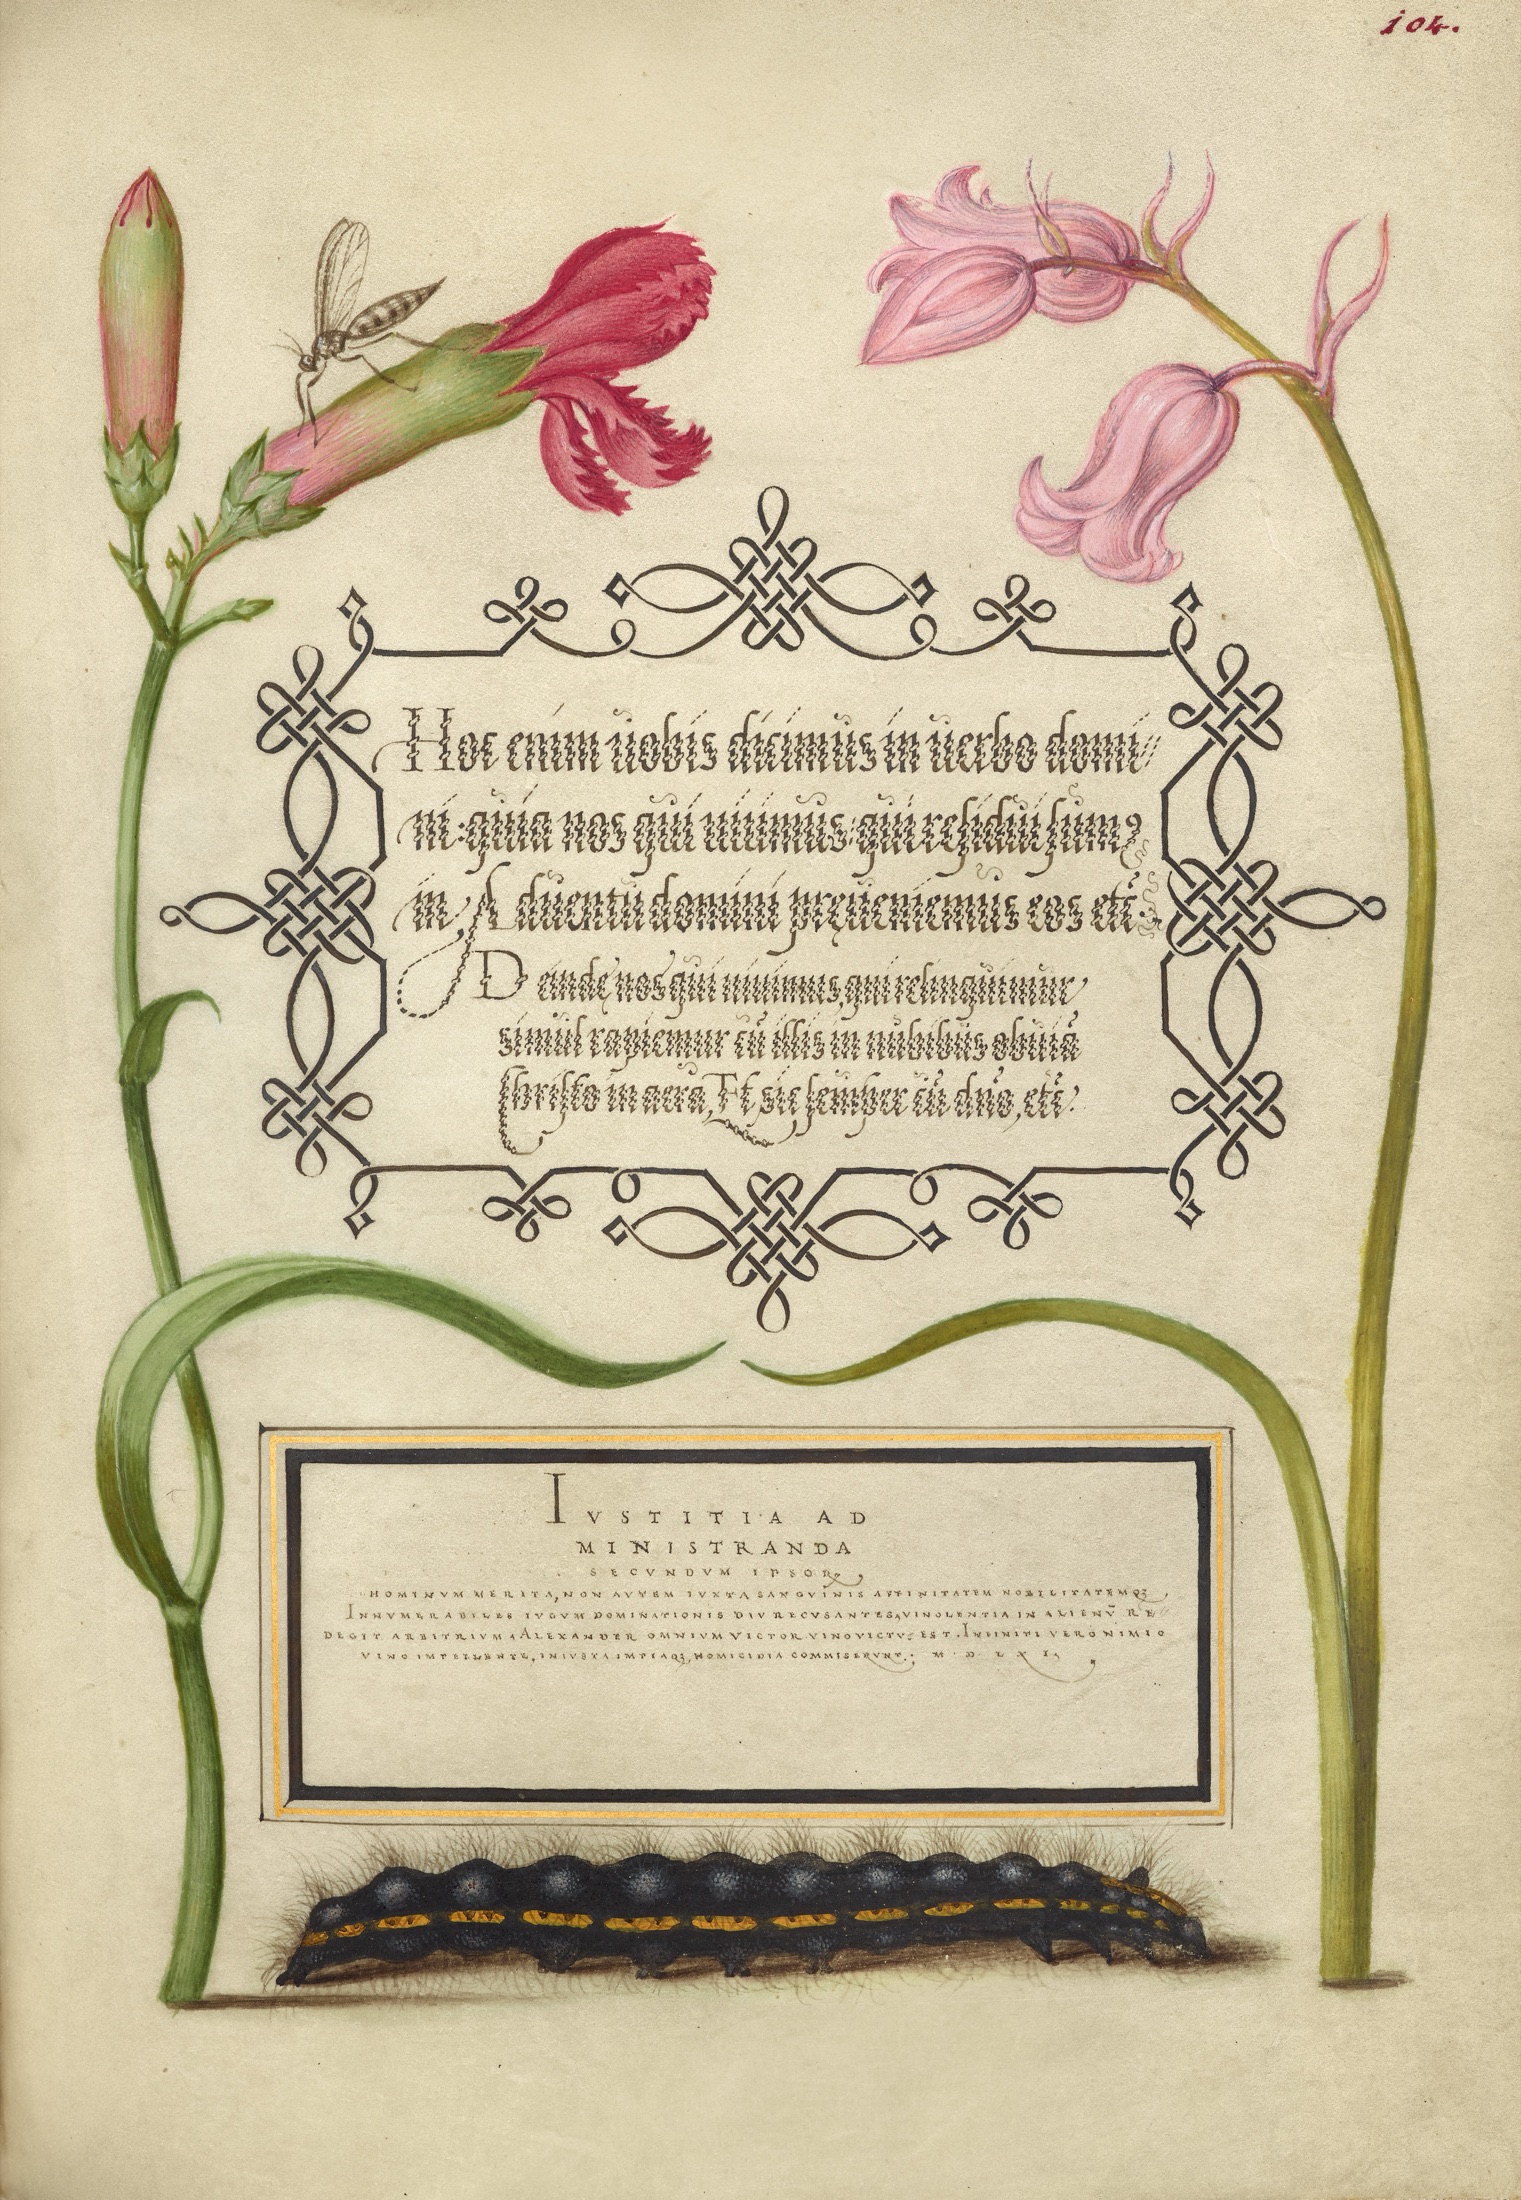 104.
Hoc enim uobis dicimus in uerbo domi//
ni: quia nos qui uiuimus, qui residui sumꝰ
in Aduentu domini pręueniemus eos etc̃.
Deinde nos qui uiuimus, qui relinquimur
simul rapiemur cũ illis in nubibus obuiã
Christo in aera, Et sic semper cũ dño, etc̃.
IVSTITIA AD
MINISTRANDA
SECVNDVM IPSOR
HOMINVM MERITA, NON AVTEM IVXTA SANGVINIS AFFINITATEM NOBILITATEMQꝫ
INNVMERABILES IVGVM DOMINATIONIS DIV RECVSANTES, VINOLENTIA IN ALIENV̄ RE//
DEGIT ARBITRIVM. ALEXANDER OMNIVM VICTOR VINO VICTVS EST. INFINITI VERO NIMIO
VINO IMPELLENTE, INIVSTA IMPIAQꝫ HOMICIDIA COMMISERVNT. M D LXI,